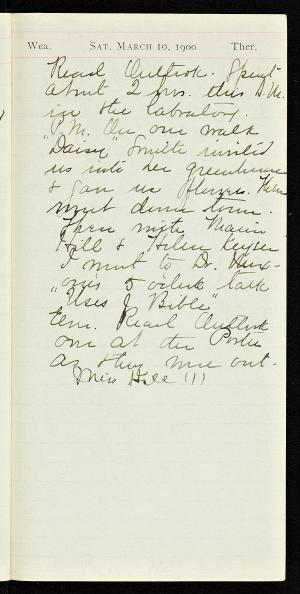 Wea. SAT. MARCH 10, 1900 Ther.
Read Outlook. Spent
about 2 hrs. this A.M.
in the labratory.
P.M. On our walk
"Daisy" Smith invited
us into her greenhouse
& gave us flowers. Then
went down town.
Then with
Hill & Helen Keyser
I went to Dr.
5 o'clock talk
"Uses of Bible"
Eve. Read Outlook
one at the
as they were out.
Miss Hill !!!